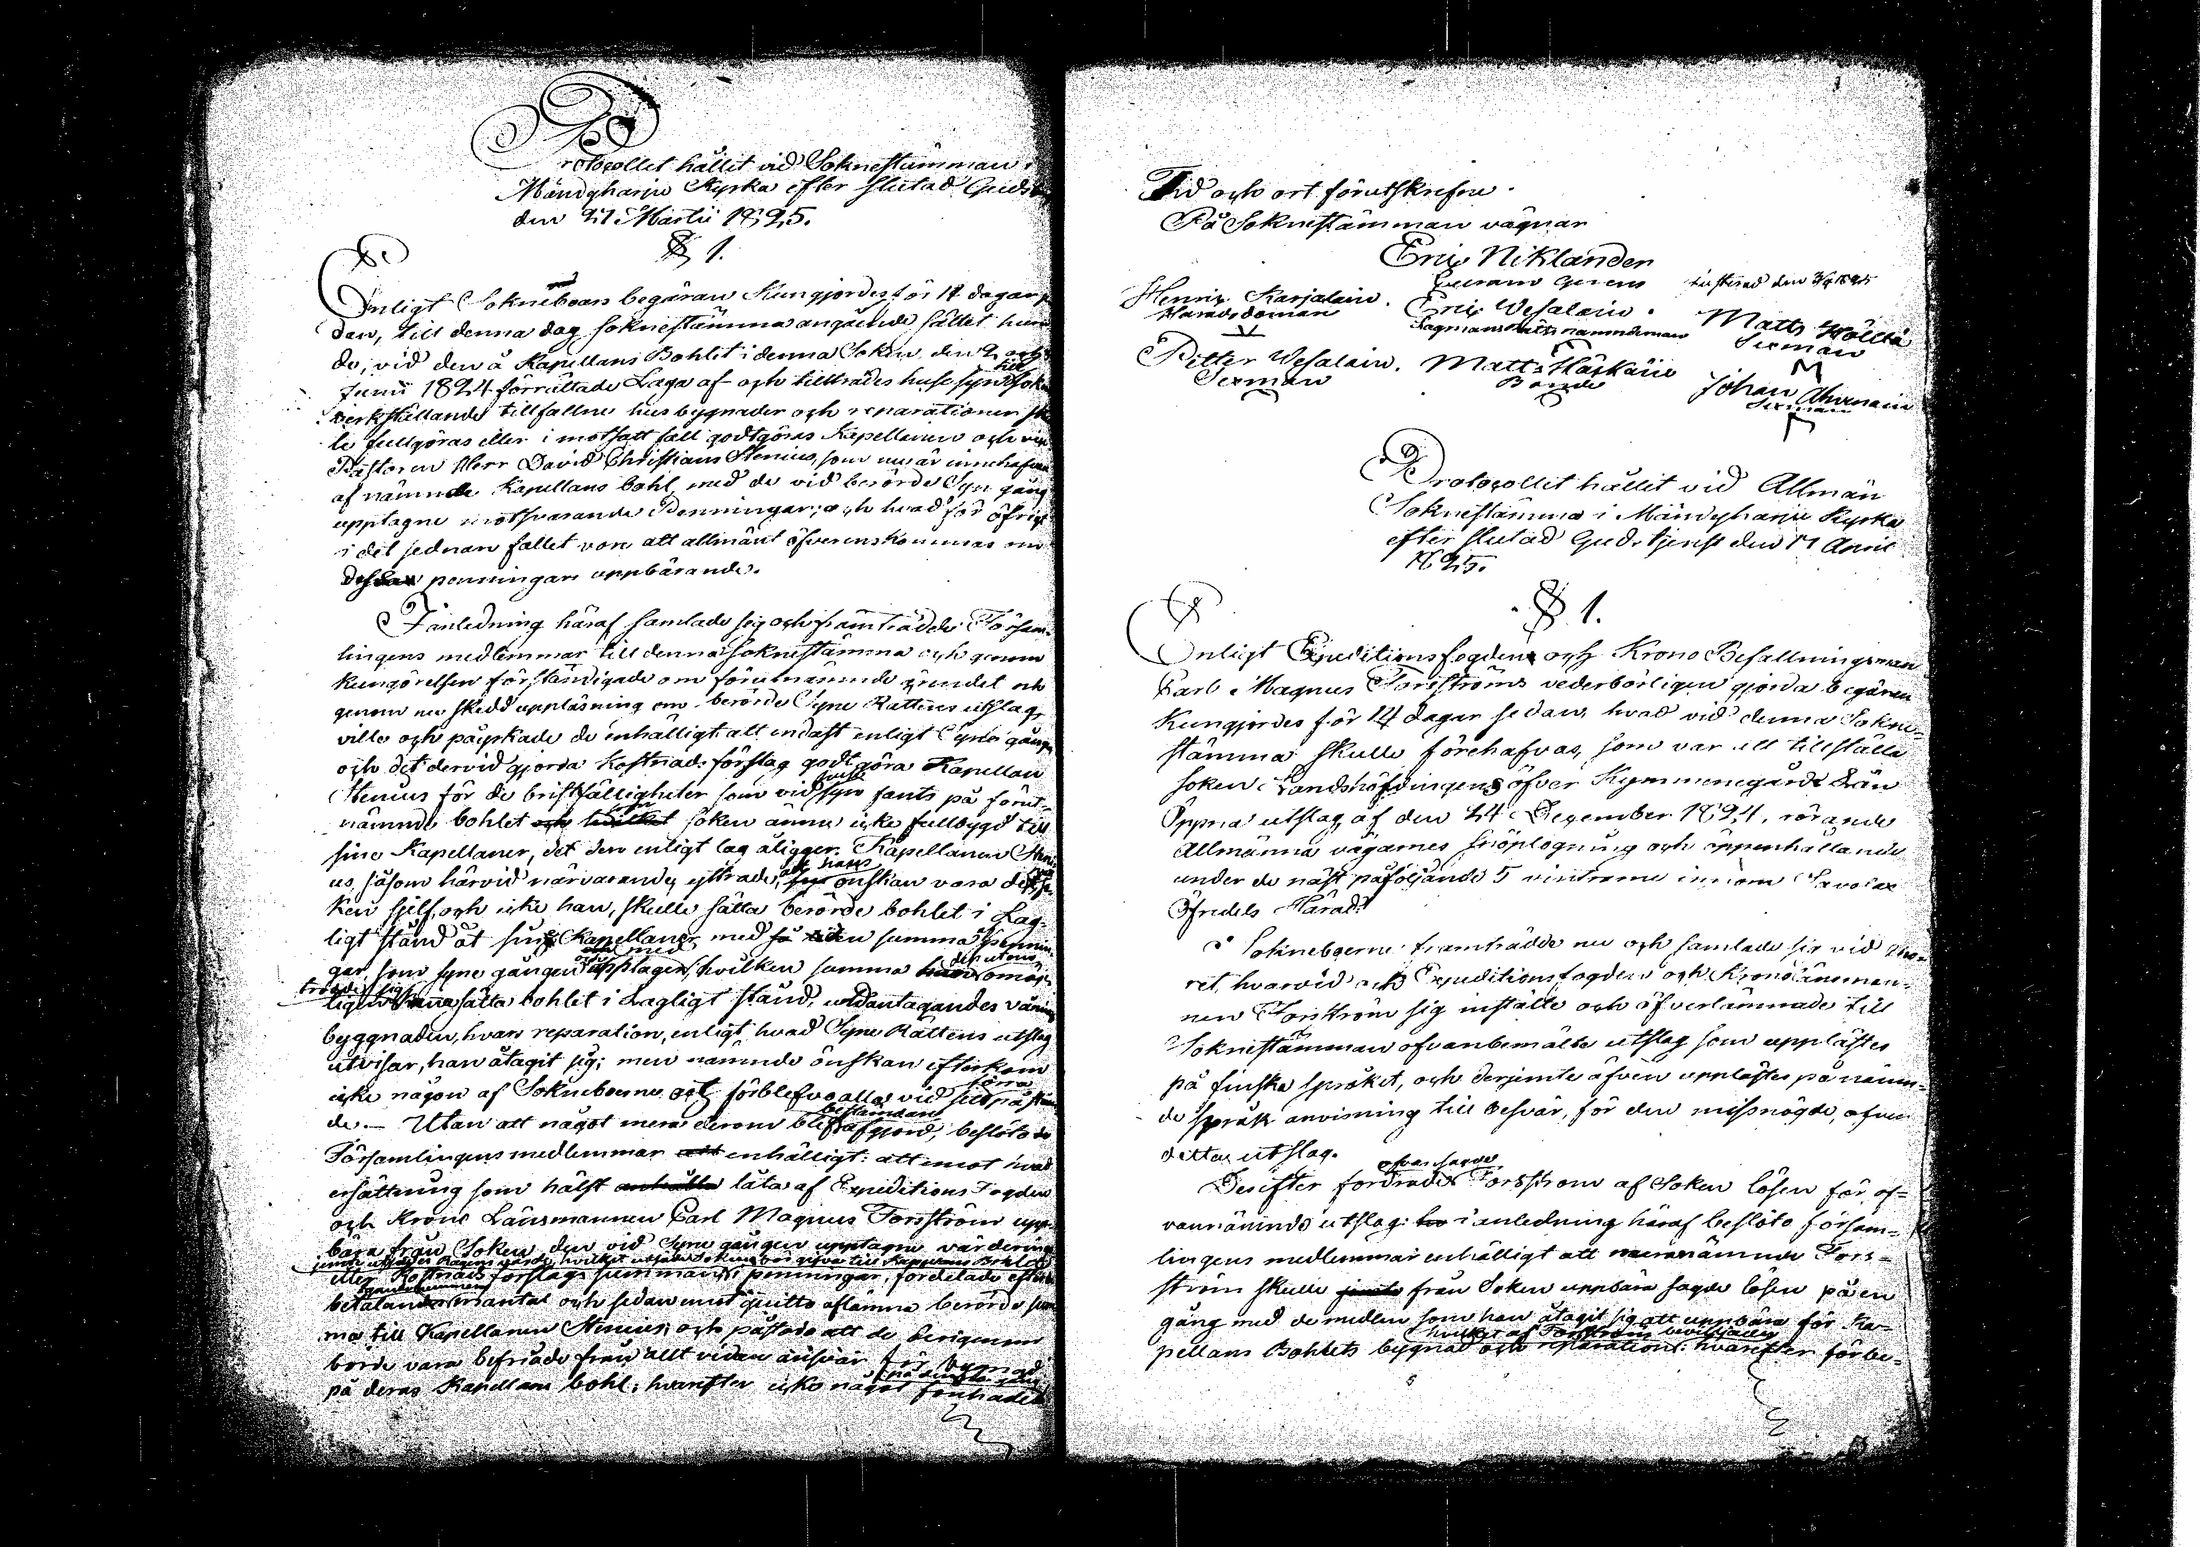 Protocollet hållit vid Soknestämman i
Mändyharju Kyrka efter slutad Guds
den 27 Martii 1825.
§ 1.
Enligt Sokneboars begäran Kungjordes för 14 dagar
dan, till denna dag soknestämma angående sättet huru
de, vid den å Kapellans Bohlet i denna Soken den 2 och
Junii 1824 förrättade Laga af- och tillträdes huse syn till Soken
verkställande tillfallne husbygnader och reparationer
le fullgöras eller i motsatt fall godtgöras Kapellanen och vice
Pastoren Herr David Christian Stenius, som nu är innehafvare
af nämnde Kapellans bohl med de vid berörde Syn gång
upptagne motsvarande Penningar; och hvad för öfrigt
i det sednare fallet vore att allmänt öfverenskommas om
dessa penningars uppbärande.
I anledning häraf samlade sig och framträdde Försam-
lingens medlemmar till denna Soknestämma och genom
kungörelsen förständigade om förutnämnde grundet och
genom nu skedd uppläsning om berörde Syne Rättens utslag,
ville och påyrkade de enhälligt att endast enligt Syne gången
och det dervid gjorda kostnads förslag godtgöra Kapellan
Stenius för de bristfälligheter som vid huse syn fants på förut-
nämnde bohlet som soken ännu icke fullbygd till
sine Kapellaner, det dem enligt lag åligger. Kapellanen Steni-
us, såsom härvid närvarande, yttrade, att hans önskan vara det so-
ken sjelf, och icke han, skulle sätta berörde bohlet i Lag-
ligt stånd åt sin Kapellaner med summa pennin-
gar, som syne gången upptagen, hvilken summa dessutom omöj-
ligen sätta bohlet i Lagligt stånd, undantagandes vånings
byggnaden, hvars reparation, enligt hvad Syne Rättens utslag
utvisar, han åtagit sig; men nämnde önskan efterkom
icke någon af Sokneboerne och förblefvo alla vid sitt förra påstående
de. — Utan att något mera derom blef bestämdan afgjord, beslöto de
Församlingens medlemmar enhälligt: att emot hvad
ersättning som hälst låta af Expeditions Fogden
och Krono Länsmannen Carl Magnus Forsström upp-
bära från Soken den vid Syne gången upptagne värderings
eller Kostnads förslags summan i penningar, fördelade efter
betalande mantal och sedan emot quitto aflämna berörde sum-
ma till Kapellanen Stenius; och påstodo att de derigenom
borde vara befriade från allt vidare ansvar för bygnad
på deras Kapellans bohl; hvarefter icke något förehades
Tid och ort förutskrefne.
På Soknestämman vägnar
Eric Niklander
Justerad den 3/4 1825
Henric Karjalain.
Häradsdoman
Eric Vesalain.
Lagmans Rätts nämndeman
Matts Hölttä
Sexman
Petter Vesalain.
Sexman
Matts Häskäin
Bonde
Johan Ahvenain
Sexman
Protocollet hållit vid Allmän
Soknestämma i Mändyharju Kyrka
efter slutad Gudstjenst den 17 April
1825.
§ 1.
Enligt Expeditionsfogden och Krono Befallningsman
Carl Magnus Forsströms vederbörligen gjorda begäran
Kungjordes för 14 dagar sedan, hvad vid denna Sokne-
stämma skulle förehafvas, som var att tillställa
soken Landshöfdingens öfver Kymmenegårds Län
Öppna utslag af den 24 December 1824, rörande
Allmänna vägarnes snöplogning och öppenhållande
under de näst påföljande 5 vintrarne innom Savolax
Öfredels Härad.
Sokneboerne framträdde nu och samlade sig vid
ret, hvarvid ock Expeditionsfogden och Kronolänsman-
nen Forsström sig inställte och öfverlämnade till
Soknestämman ofvanbemälte utslag som upplästes
på finska språket, och derjemte äfven upplästes på nämn-
de språk anvisning till besvär, för den missnögde, öfver
detta utslag.
Derefter fordrade ofvansagde Forsström af Soken lösen för of-
vannämnde utslag: i anledning häraf beslöto försam-
lingens medlemmar enhälligt att nämnde Fors-
ström skulle från Soken uppbära sagde lösen på en
gång med de medlen som han åtagit sig att uppbära för Ka-
pellans Bohlets bygnad och reparation: hvilket af Forsström bevilljades hvarefter förbe-